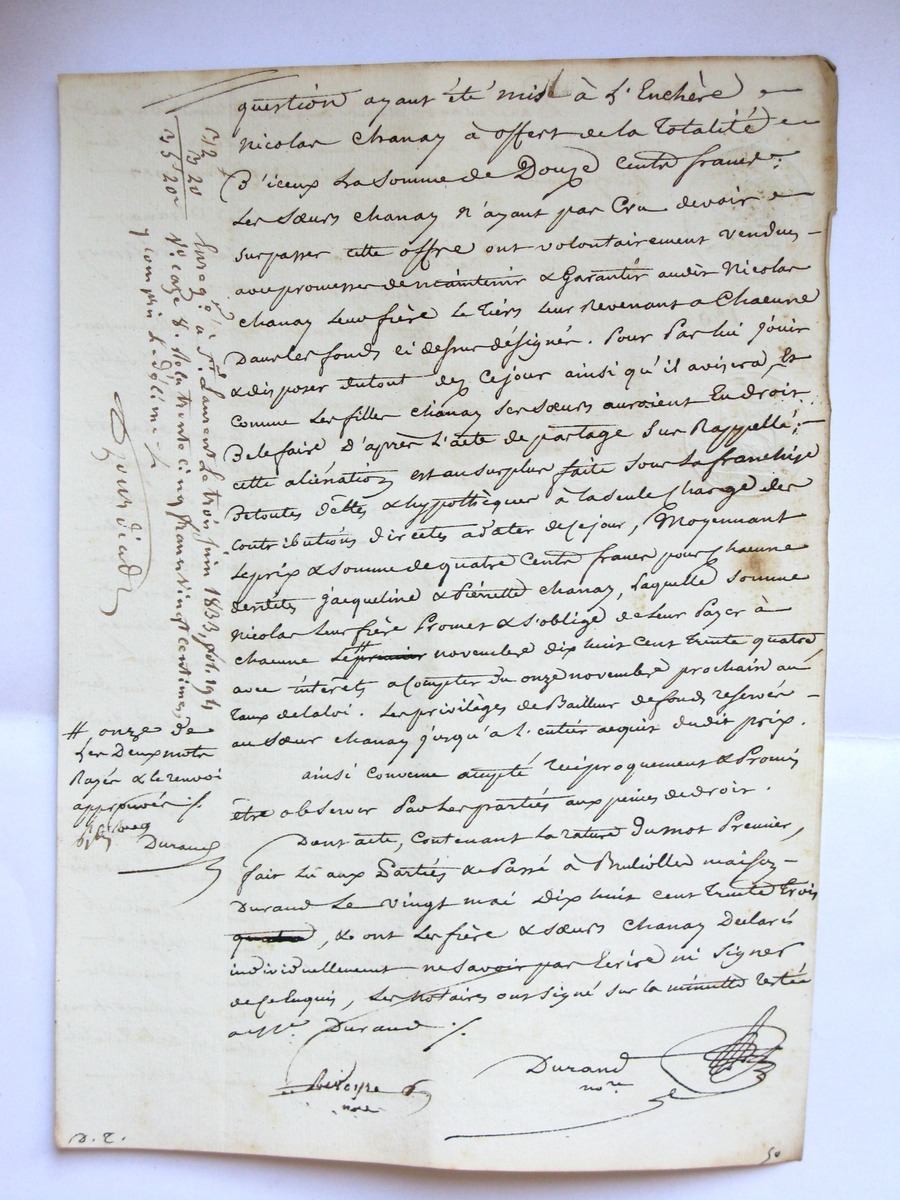 question ayant été mise à L'Enchère
Nicolas Chanay à offert de la Totalité
D'iceux La Somme de Douze Cents francs.
Les Sœurs Chanay N'ayant pas Cru devoir
surpasser cette offre ont volontairement vendus
avec promesse de maintenir & Garantir audit Nicolas
Chanay Leur frère Le Tiers Leur Revenant a Chacune
Dans les fonds ci dessus désignés. Pour Par lui Jouir
& disposer du tout dez Cejour ainsi qu'il avisera, Et
Comme Les filles Chanay Ses Sœurs auroient Eu droit
De le faire D'après L'acte de partage Sus Rappellé.
cette aliénation est au surplus faite sous la franchise
De toutes dettes & hypothèques à la seule Charge des
Contributions directes adater de Cejour, Moyennant
Le prix & Somme de quatre Cents francs pour Chacune
desdites Jacqueline & Pierrette Chanay, Laquelle Somme
Nicolas Leur frère Promet & S'oblige de Leur Payer à
Chacune Le # premier novembre dix huit cent trente quatre
avec intérêts a Compter du onze novembre prochain au
Taux de la loi. Les privilèges de Bailleur de fonds reservés
au Sœur Chanay jusqu'a l'entier acquit dudit prix.
ainsi Convenu accepté réciproquement & Promis
être observer Par Les parties aux peines de droit.
Dont acte, Contenant La rature du mot Premier,
fait Lu aux Parties & Passé à Brullioles maison
Durand Le vingt mai Dix huit cent trente trois
quatre, & ont Les frère & sœurs Chanay Declarés
individuellement ne Savoir pas Ecrire ni Signer
de Ce Enquis, Les Notaires ont signé sur la minutte restée
a Me Durand ./.
Durand
nore
nore
# onze de
Les Deux mots
Rayés & le renvoi
approuvés ./.
Durand
1312
1320
Enregé à St Laurent Le trois juin 1833, fol. 191
Vo Caze 8. Reçu trente cinq francs vingt centimes
y compris Le décime
D. T.
50